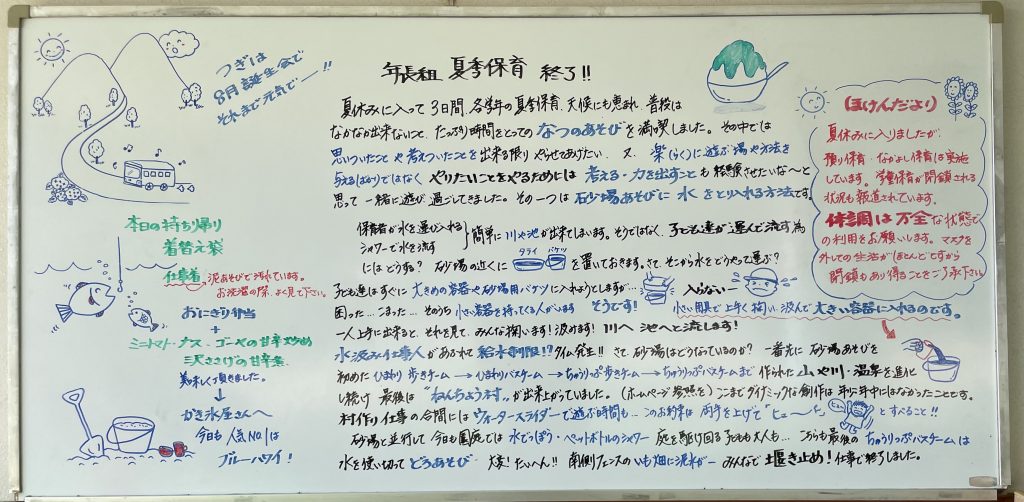 つぎは
8月誕生会で
それまで元気でー!!
年長組 夏季保育 終了!!
夏休みに入って3日間、各学年の夏季保育、天候にも恵まれ、普段は
なかなか出来ないこと、たっぷり時間をとっての なつのあそびを満喫しました。その中では
思いついたことや考えついたことを出来る限りやらせてあげたい、又、楽(らく)に遊ぶ場や方法を
与えるばかりではなく やりたいことをやるためには 考える・力を出すことも経験させたいな〜と
思って 一緒に遊び過ごしてきました。その一つは 砂場あそびに水をとり入れる方法です。
保育者が水を運び入れる
シャワーで水を流す
簡単に 川や池が出来てしまいます。そうではなく、子ども達が運んで流す為
にはどうする? 砂場の近くに
タライ
バケツ
を置いておきます。さて、そこから水をどうやって運ぶ?
子ども達はすぐに 大きめの容器や砂場用バケツに入れようとしますが…
入らないー
困った…こまった…そのうち 小さい容器を持ってくる人がいます そうです!
小さい用具で上手く掬い、汲んで大きい容器に入れるのです。
一人上手に出来ると、それを見て、みんな掬います!汲めます!川へ 池へと流します!
水汲み仕事人があらわれ 給水制限!?タイム発生!! さて、砂場はどうなっているのか? 一番先に 砂場あそびを
初めた ひまわり歩きチーム→ひまわりバスチーム→ちゅうりっぷ歩きチーム→ちゅうりっぷバスチームまで 作られた山や川・温泉を進化
し続け 最後は "ねんちょう村"が出来上がっていました。(ホームページ参照を)ここまでダイナミックな創作は年少年中にはなかったことです。
村作り仕事の合間には ウォータースライダーで遊ぶ時間も…このお約束は 両手を上げて"ヒューバ"
とすべること!!
砂場と並行して 今日も園庭では 水でっぽう・ペットボトルのシャワー 庭を駆け回る子ども大人も… こちらも最後の ちゅうりっぷバスチームは
水を使い切って どろあそび… 大変!たいへん!! 南側フェンスの いも畑に泥水がー みんなで 堰き止め!仕事で終了しました。
本日の持ち帰り
着替え袋
仕事着
泥あそびで汚れています。
お洗濯の際、よく見て下さい。
おにぎり弁当
+
ミニトマト・ナス・ゴーヤの甘辛炒め
三尺ささげの甘辛煮、
美味しく頂きました。
↓
かき氷屋さんへ
今日も人気No.1は
ブルーハワイ!
ほけんだより
夏休みに入りましたが、
預り保育・なかよし保育は実施
しています。学童保育が閉鎖される
状況も報道されています。
体調は万全な状態で
の利用をお願いします。マスクを
外しての生活がほとんどですから
閉鎖もあり得ることをご了承下さい。